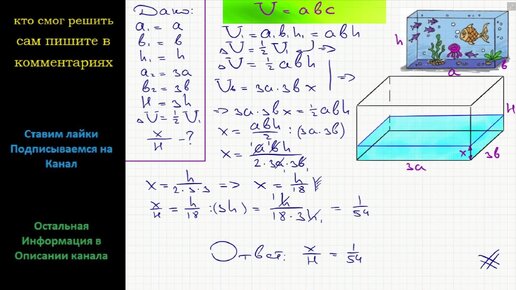 кто смог решить
сам пишите в
комментариях
Ставим лайки
Подписываемся на
Канал
Остальная
Информация в
Описании канала
Дано:
a₁ = a
b₁ = b
h₁ = h
a₂ = 3a
b₂ = 3b
H = 3h
ΔU = ½ U₁
x/H - ?
U = abc
U₁ = a₁b₁h₁ = abh
ΔU = ½ U₁
ΔU = ½ abh
U₂ = 3a·3b x
⇒ 3a·3b x = ½ abh
x = abh/2 : (3a·3b)
x = abh/2·3a·3b
x = h/2·3·3 ⇒ x = h/18
x/H = h/18 : (3h) = h/18·3h = 1/54
Ответ: x/H = 1/54
h
a
H
x
3a
3b